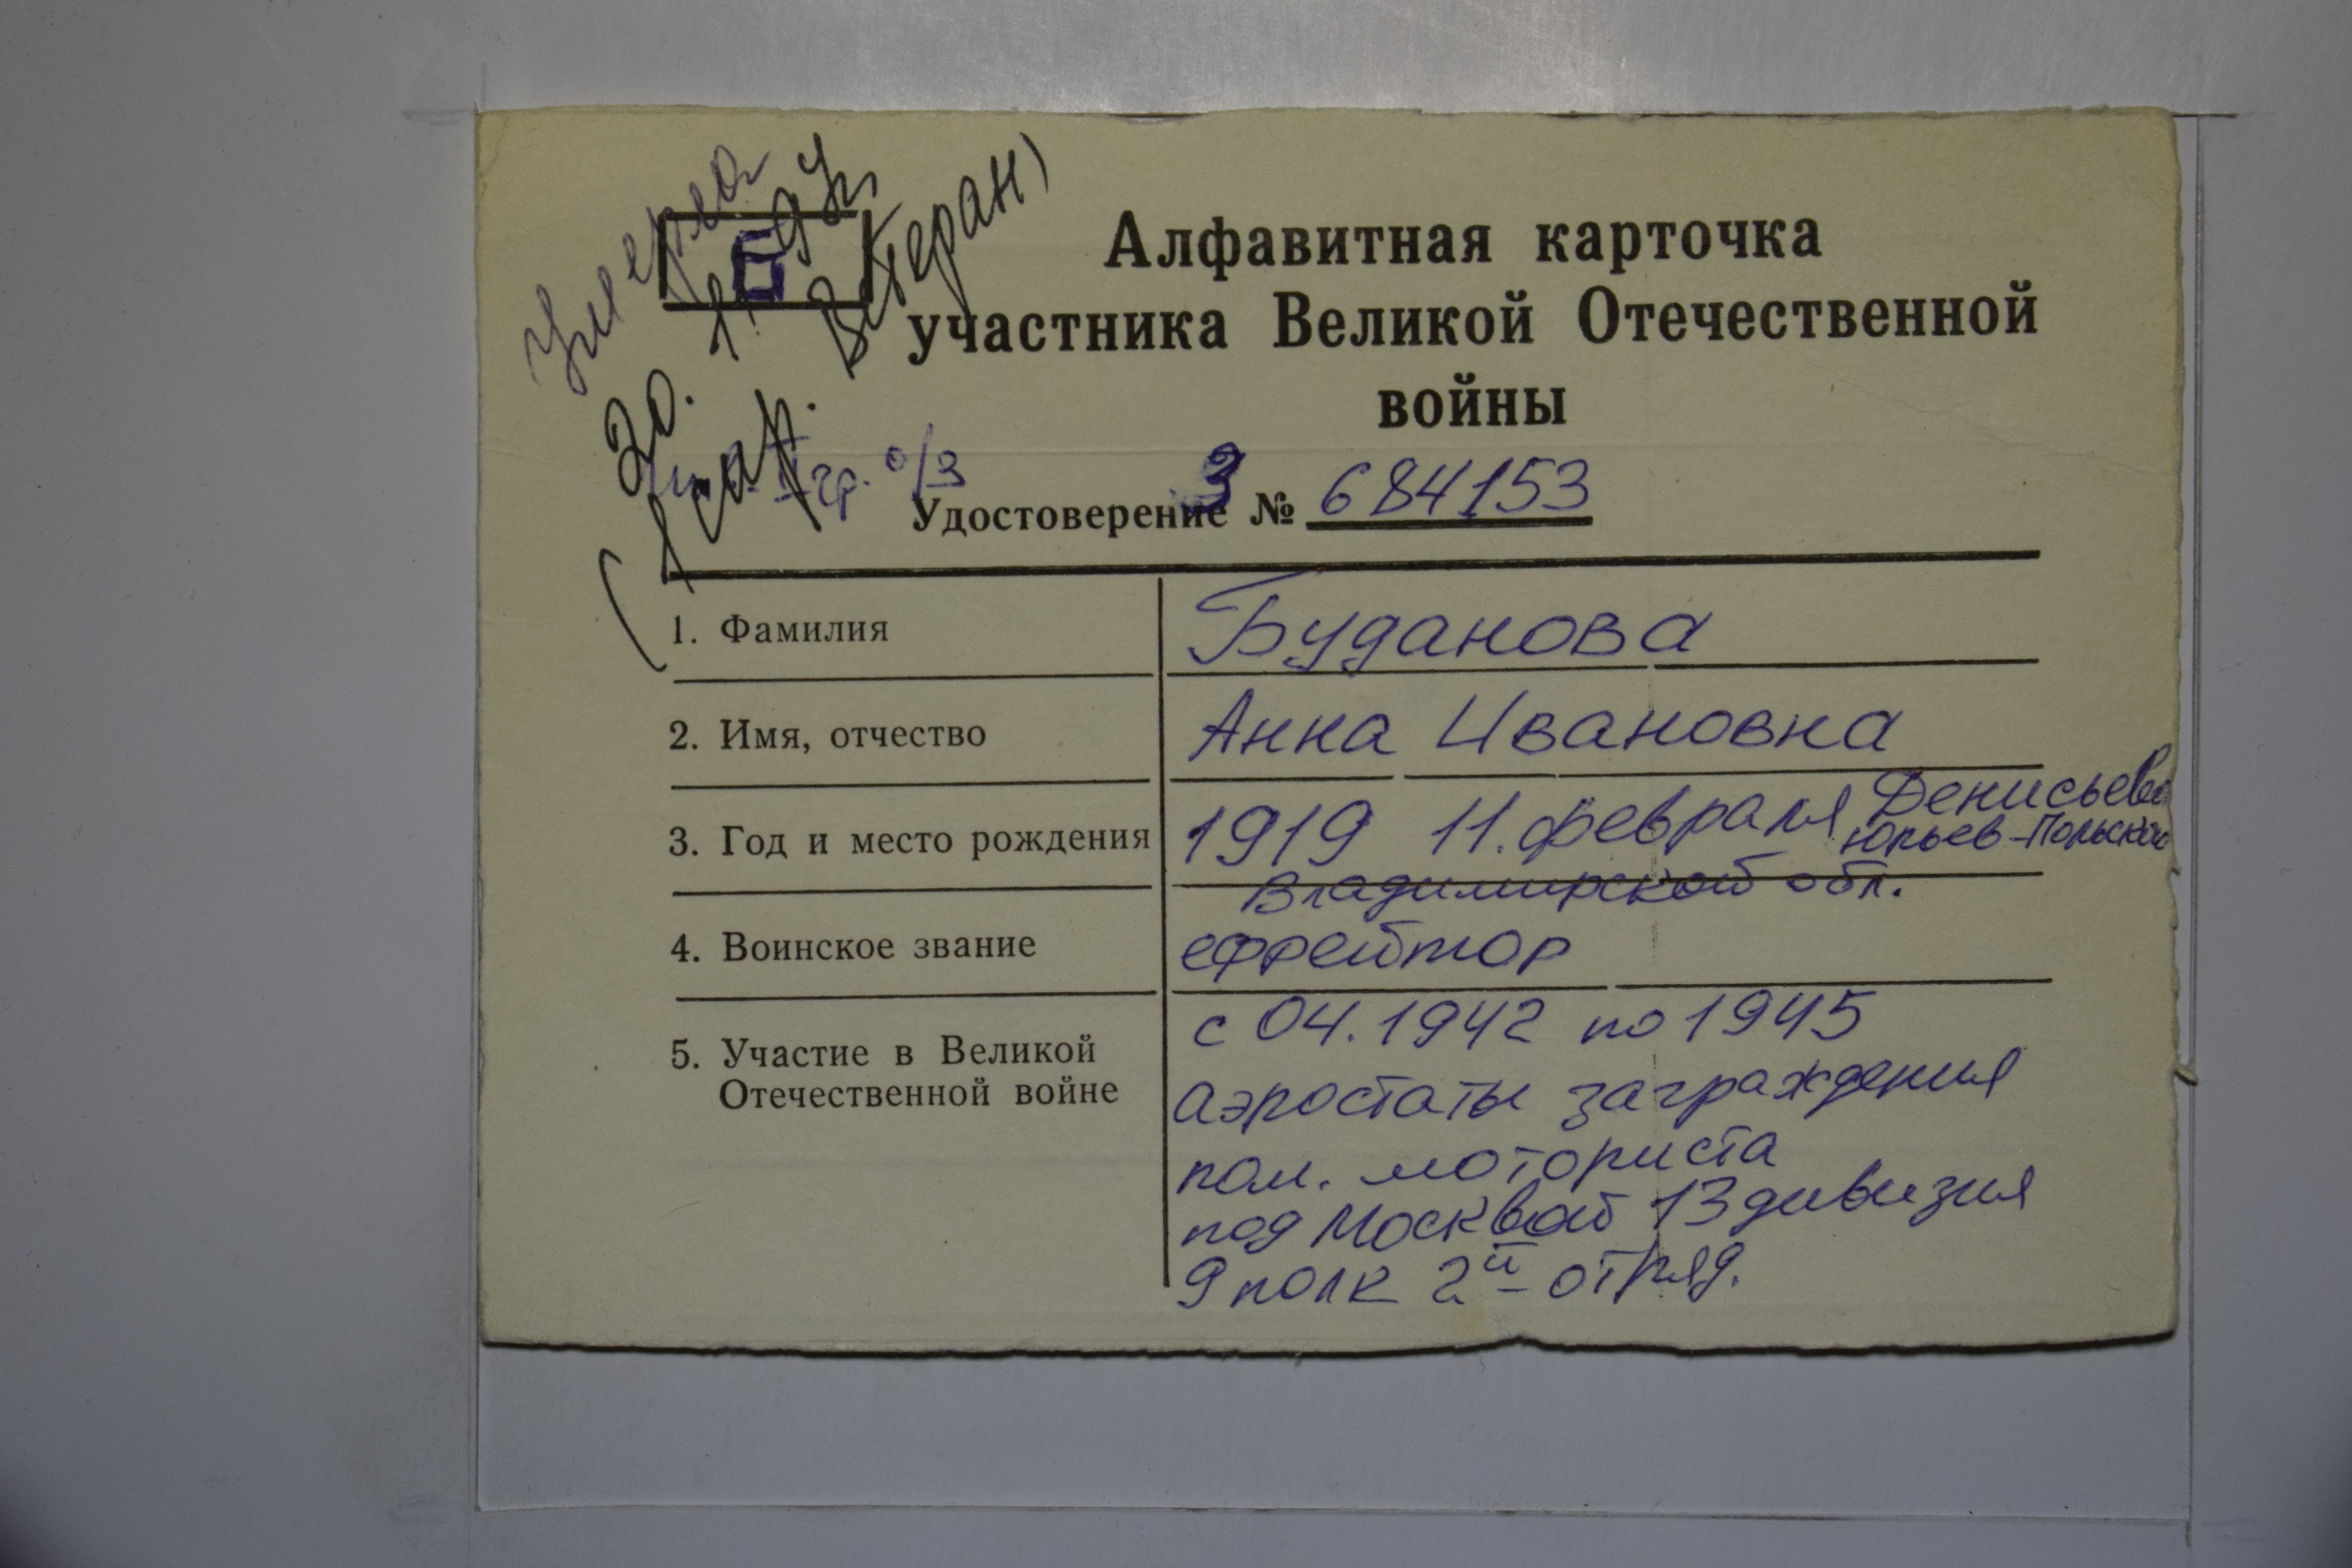 Умерла
20. 1. 94г.
Б
(1 сар. Ветеран)
Алфавитная карточка
участника Великой Отечественной
войны
инв. II гр. о/з
Удостоверение З № 684153
1. Фамилия Буданова
2. Имя, отчество Анна Ивановна
3. Год и место рождения 1919 11. февраля Денисьево
Юрьев-Польский
Владимирской обл.
4. Воинское звание ефрейтор
5. Участие в Великой Отечественной войне с 04.1942 по 1945
аэростаты заграждения
пом. моториста
под Москвой 13 дивизия
9 полк 2й отряд.